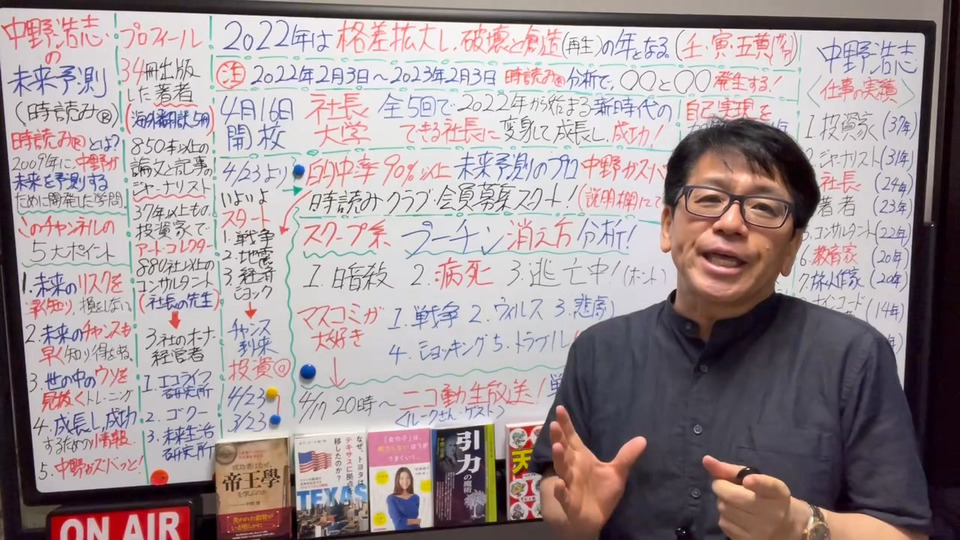 中野浩志
の
未来予測
(時読み®)
時読み®とは?
2009年に中野が
未来を予測する
ために開発した学問
このチャンネルの
5大ポイント
1.未来のリスクを
早く知り、損しない
2.未来のチャンスも
早く知り得する。
3.世の中のウソを
見抜くトレーニング
4.成長し、成功
するための情報
5.中野がズバッと!
プロフィール
34冊出版
した著者
(海外翻訳5冊)
850本以上の
論文と記事の
ジャーナリスト
37年以上もの
投資家で
アートコレクター
880社以上の
コンサルタント
(社長の先生)
3社のオーナー
経営者
1.エコライフ
研究所
2.ゴクー
3.未来生活
研究所
2022年は格差拡大し、破壊と創造(再生)の年となる
注 2022年2月3日~2023年2月3日 時読み®分析で、〇〇と〇〇発生する!
4月16日
開校
社長
大学
全5回で、2022年から始まる新時代の
できる社長に変身して成長し、成功!
自己実現を
4/23より
いよいよ
スタート
1.戦争
2.地震
3.経済
ショック
チャンス
到来
投資
4/23
3/23
的中率90%以上 未来予測のプロ 中野がズバ
時読みクラブ会員募集スタート!(説明欄にて
スクープ系 プーチン消え方分析!
1.暗殺 2.病死 3.逃亡中!
マスコミが
大好き
1.戦争 2.ウィルス 3.悲劇
4.ショッキング 5.トラブル
4/17 20時~ ニコ動生放送!
<ルークさん、ゲスト>
中野浩志
<仕事の実績>
1.投資家(37年)
ジャーナリスト(31年)
社長(24年)
著者(23年)
コンサルタント(22年)
6.教育家(20年)
7.旅人作家(20年)
(14年)
帝王學
なぜ、トヨタは
テキサスに拠点を
移したのか?
TEXAS
引力の魔術
天
ON AIR